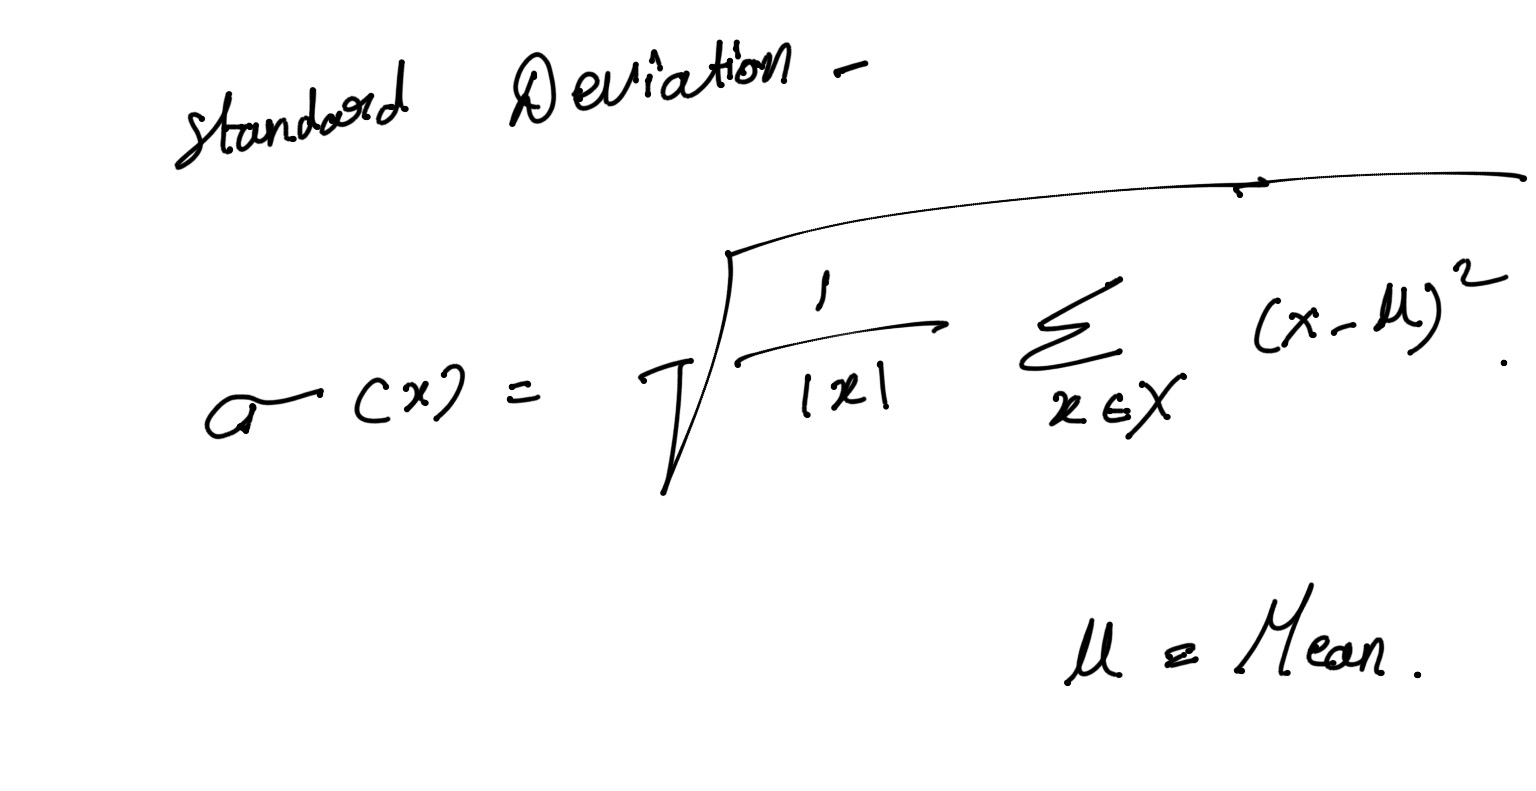 Standard Deviation -
σ (x) = √ 1/|x| ∑ x∈X (x-μ)² .
μ = Mean.